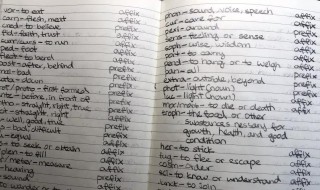 vor- to eat affix
carn- flesh, meat affix
cred- to believe affix
fid- faith, trust affix
curr/curs- to run affix
ped- foot affix
flect- to bend affix
post- after, behind prefix
mal- bad prefix
cata- down prefix
prot/proto - first formed prefix
before, in front of prefix
ortho- straight, right, true prefix
straight, right prefix
well, good prefix
bad, difficult prefix
equal prefix
to seek or attain affix
to fill affix
meter/metr- measure affix
meaning affix
sound prefix
phon- sound, noise, speech affix
cur- care for affix
peri- around prefix
sens- feeling or sense affix
soph- wise, wisdom affix
path- affix
pend- to hang or to weigh affix
omni- all prefix
extra- outside, beyond prefix
phot- light (noun) prefix
luc- light (noun) affix
mor/mort- to die or death affix
troph- the food or other affix
substances necessary for
growth, health, and good
condition
her- to stick affix
fug- to flee or escape affix
affix
sci- to know or understand affix
junct- to join affix